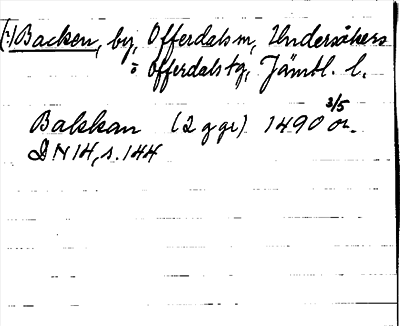 (:) Backen, by, Offerdals sn, Undersåkers
o Offerdals tg, Jämtl. l.
Bakkan (2 ggr) 1490 3/5 or.
DN 14, s. 144